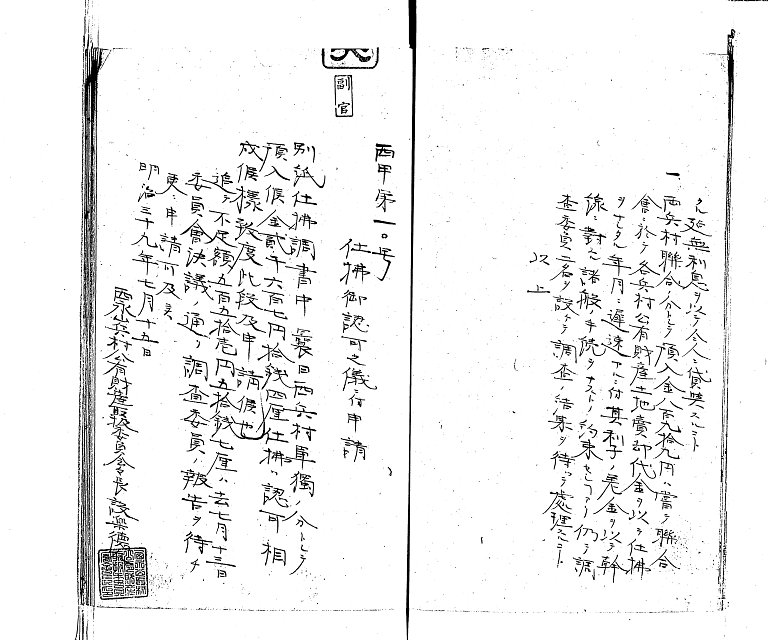 タル延無利息ヲ以テ今人ニ貸与スルコト
一、西兵村聯合ノ分トシテ預入金八百九拾九円ハ嘗テ聯合
會ニ於テ各兵村公有財産土地賣却代金ヲ以テ仕拂
ヲナシタル年月ニ遅速アルニ付其利子ノ差金ヲ以テ幹
線ニ對スル諸般ノ手続ヲナストノ約束セシコアリ仍テ調
査委員二名ヲ設ケテ調査ノ結果ヲ待ツテ處理スルコト
以上
副官
西甲第一〇号
仕拂御認可之儀ニ付申請
別紙仕拂調書中曩日西兵村単獨ノ分トシテ
預入候金貳千六百七円拾銭四厘仕拂ニ認可相
成候様致度此段及申請候也
追テ不足額五百五拾壱円五拾銭七厘ハ去七月十三日
委員會決議ノ通リ調査委員ノ報告ヲ待チ
更ニ申請可及候
明治三十九年七月十五日
西永山兵村公有財産取扱委員会長 設楽德